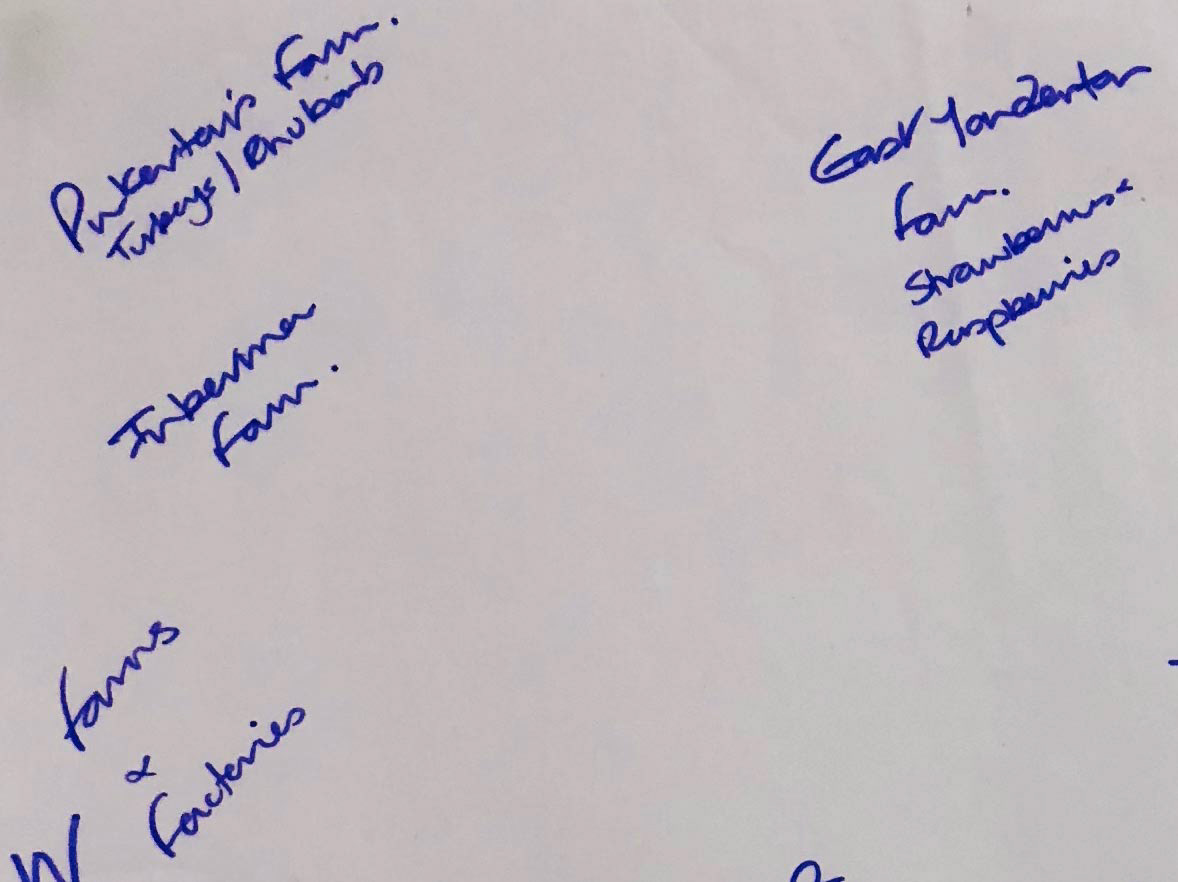 Farm.
Turkeys / Rhubarb
East Yonderton
Farm.
Strawberries &
Raspberries
Inkerman
Farm.
Farms
&
Factories